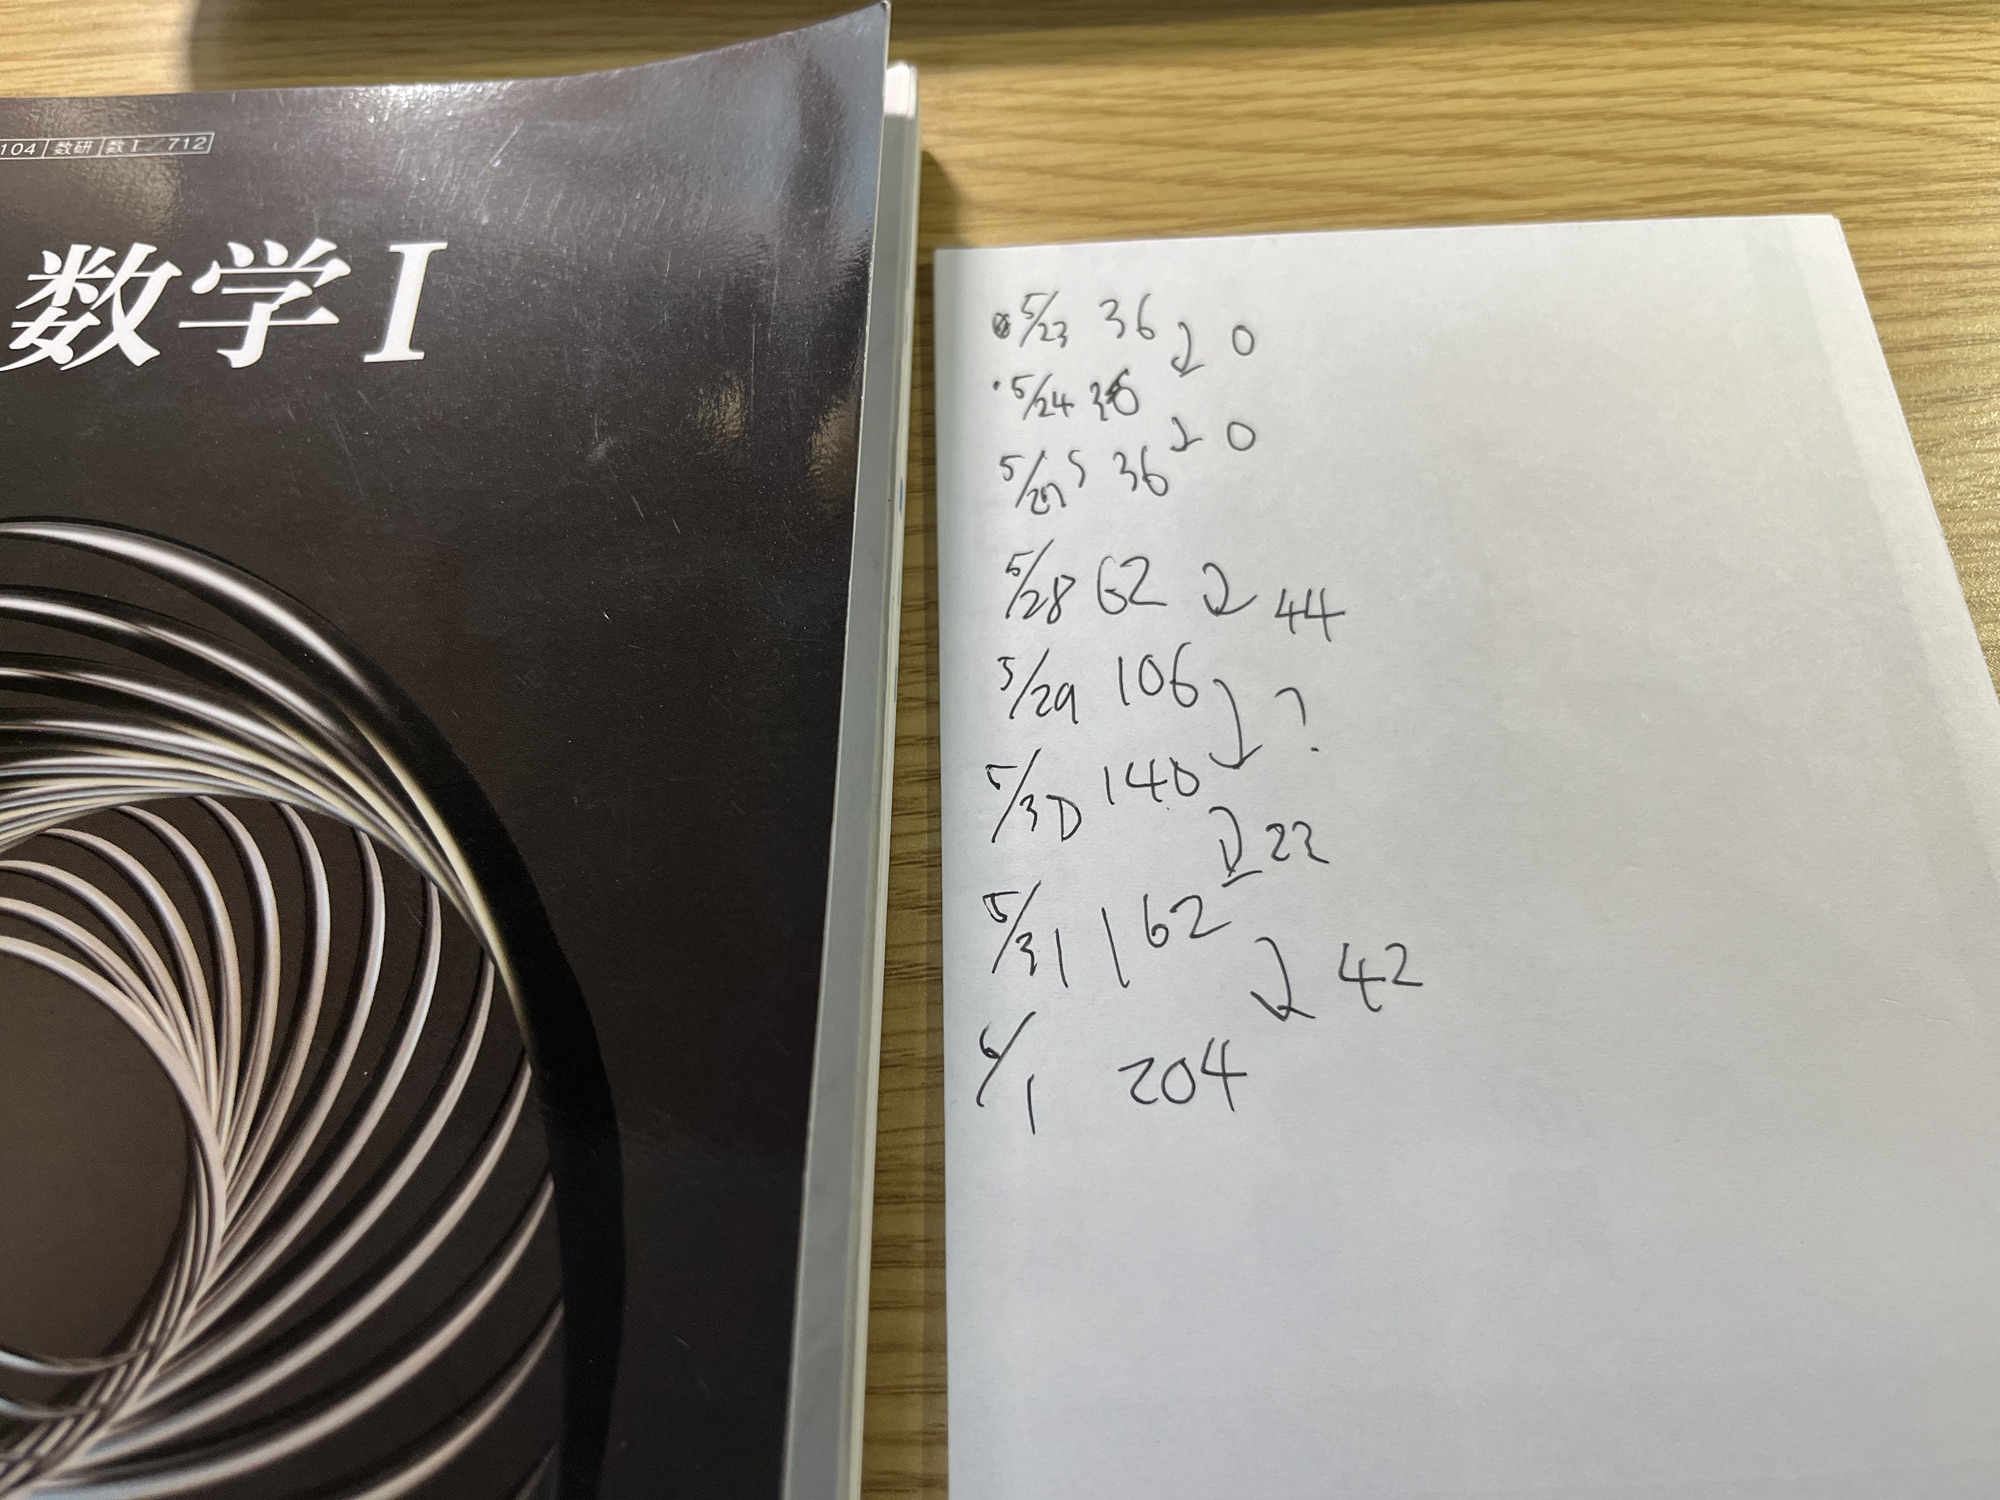 104 数研 数Ⅰ/712
数学Ⅰ
5/23 36 0
5/24 36
0
5/25 36
5/28 62 44
5/29 106
?
5/30 140
22
5/31 162
42
6/1 204